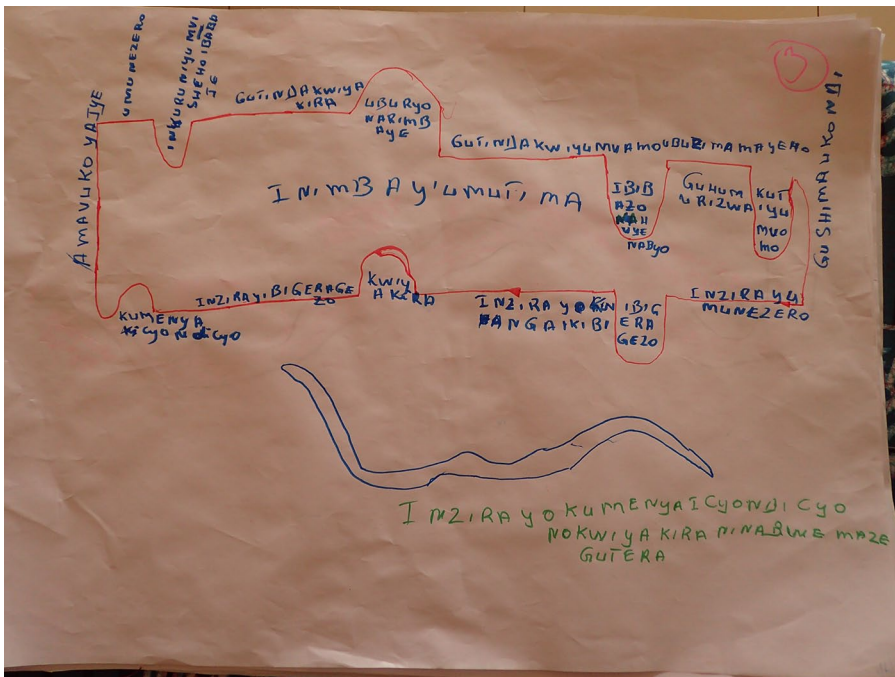 UMUNEZERO
INKURUNIYUMVI
SHEHOIBABA
JE
GUTINDAKWIYA
KIRA
UBURYO
NARIMB
AYE
GUTINDAKWIYUMVAMOUBUZIMAMAYERO
AMAVUKOYAJYE
INIMBAY'UMUTIMA
IBIB
AZO
NAH
UYE
NABYO
GUHUM
URIZWA
KUT
IYU
MVO
MO
GUSHIMA
KUMENYA
ICYONDICYO
INZIRAYIBIGERAGE
ZO
KWIY
AKIRA
INZIRAYO
NGAIKI
IBIG
ERA
GEZO
INZIRAYU
MUNEZERO
INZIRAYOKUMENYAICYONDICYO
NOKWIYAKIRANINABWEMAZE
GUTERA